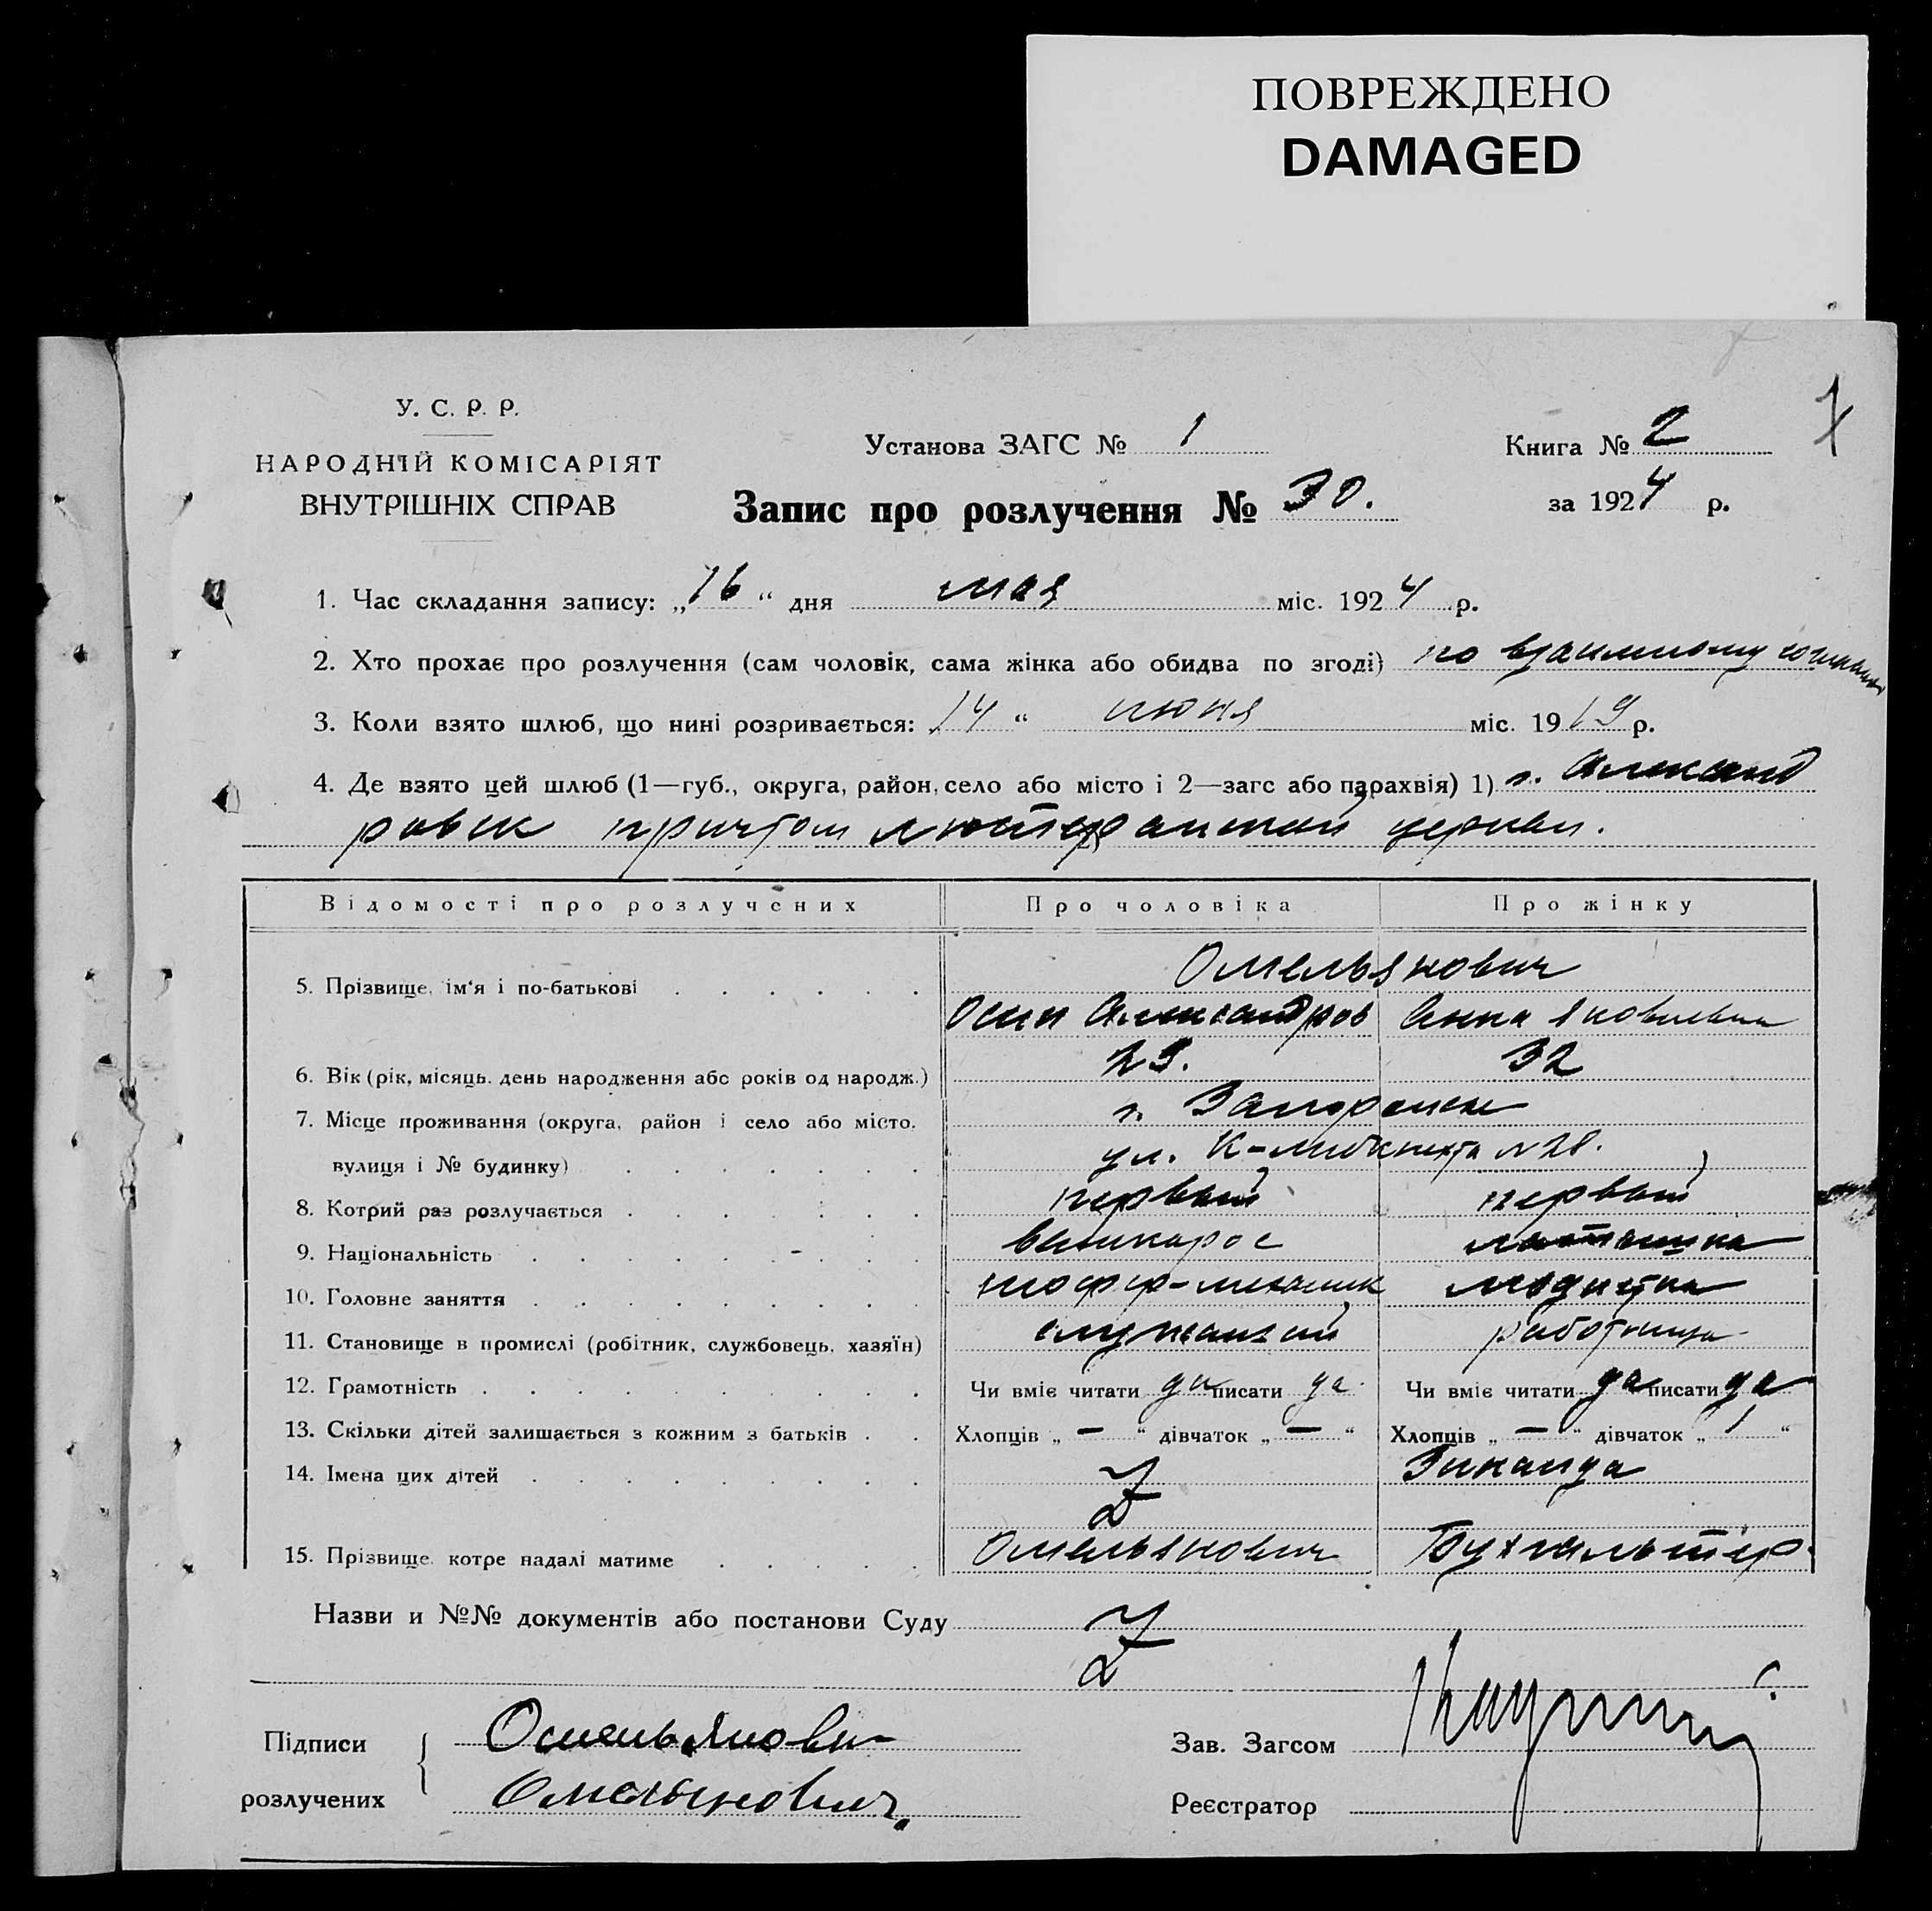 ПОВРЕЖДЕНО
DAMAGED
7
У. С. Р. Р.
НАРОДНІЙ КОМІСАРІЯТ
ВНУТРІШНІХ СПРАВ
Установа ЗАГС № 1
Книга № 2
Запис про розлучення № 30.
за 1924 р.
1. Час складання запису: „16“ дня мая міс. 1924 р.
2. Хто прохає про розлучення (сам чоловік, сама жінка або обидва по згоді) по взаимному
3. Коли взято шлюб, що нині розривається: 14 “ июня міс. 1919 р.
4. Де взято цей шлюб (1—губ., округа, район, село або місто і 2—загс або парахвія) 1) г. Александ
ровск причтом лютеранской церкви.
Відомості про розлучених Про чоловіка Про жінку
Омельянович
5. Прізвище, ім'я і по-батькові
Осип Александров Анна Яковлевна
6. Вік (рік, місяць, день народження або років од народж.) 29. 32
7. Місце проживання (округа, район і село або місто, г. Запорожье
вулиця і № будинку) ул. К-Либкнехта №28.
8. Котрий раз розлучається первый первый
9. Національність великорос латышка
10. Головне заняття шоффр-механик модистка
11. Становище в промислі (робітник, службовець, хазяїн) служащий работница
12. Грамотність Чи вміє читати да писати да Чи вміє читати да писати да
13. Скільки дітей залишається з кожним з батьків Хлопців „ — “ дівчаток „ — “ Хлопців „ — “ дівчаток „ 1 “
14. Імена цих дітей Z Зинаида
15. Прізвище, котре надалі матиме Омельянович Бухгальтер.
Назви и №№ документів або постанови Суду Z
Підписи Омельянович
розлучених Омельянович
Зав. Загсом
Реєстратор